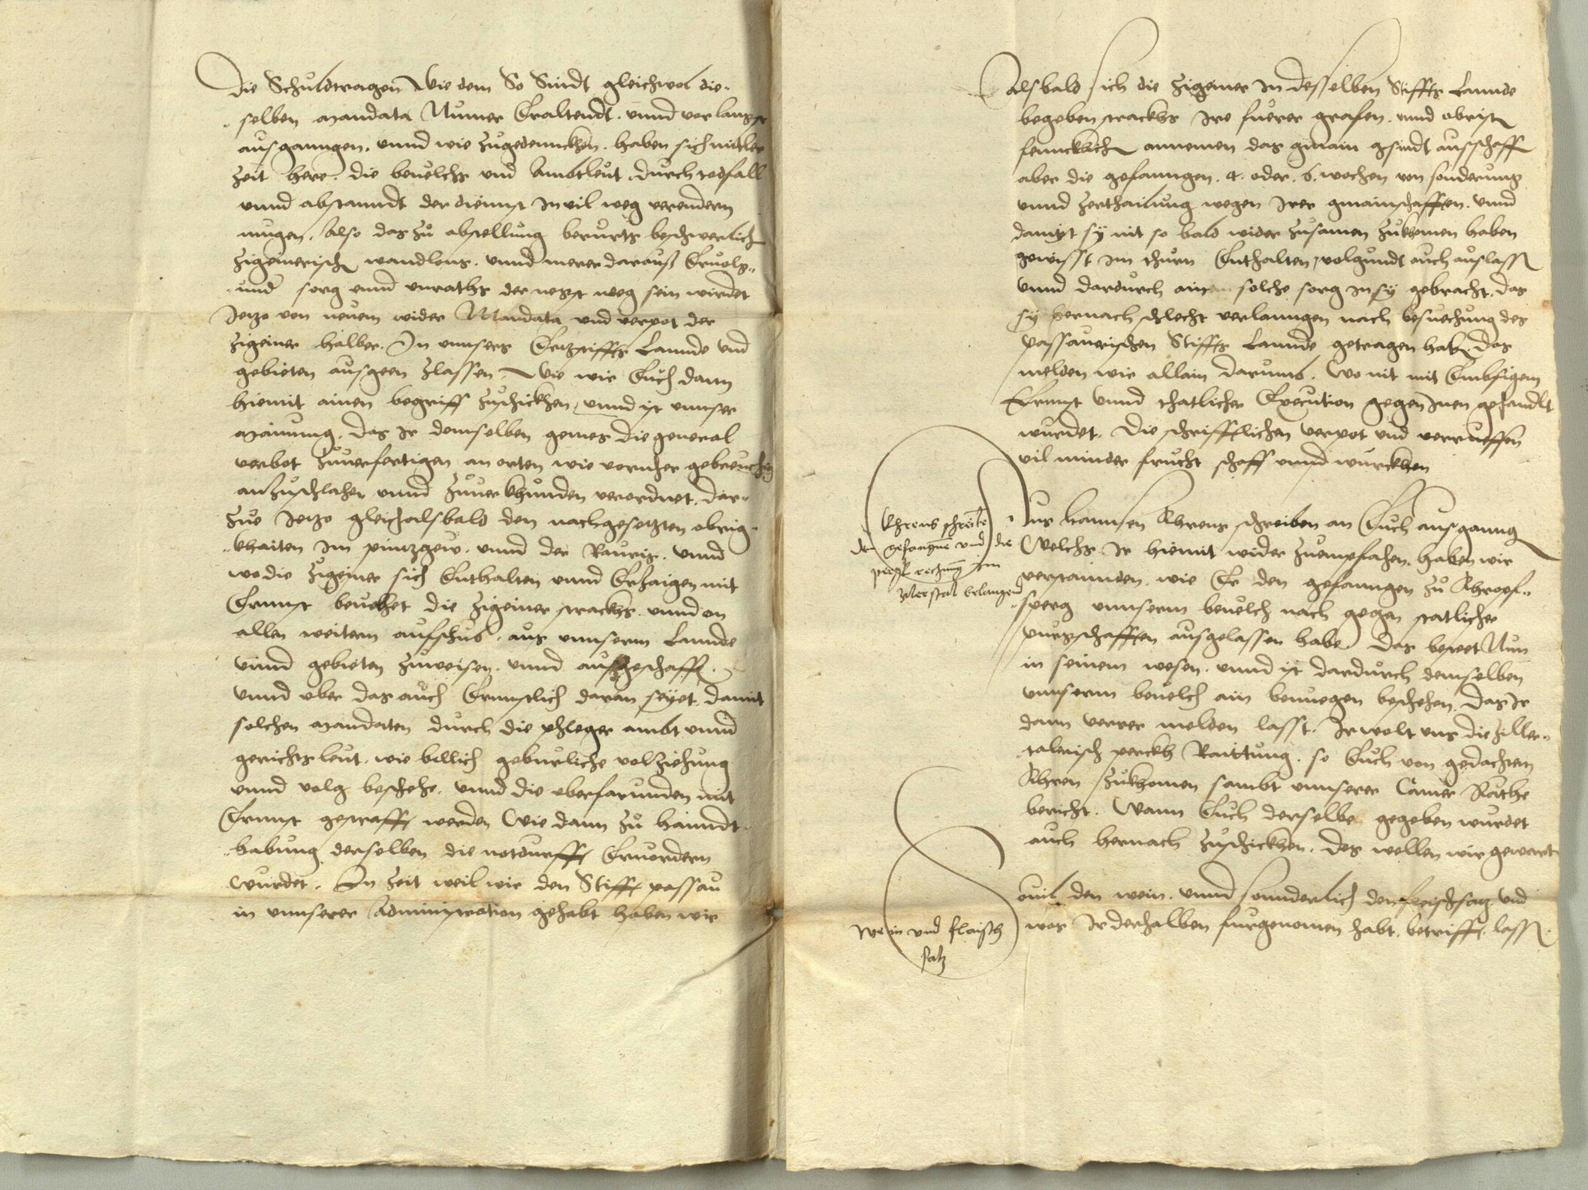 die Schuldtragen Wie dem So Sindt gleichwol die-
selben mandata Numer Eraltendt. unnd vor lanngst
ausganngen. unnd wie zugedennckhen. haben sich mitler
zeit here. die bevelchs und Ambtleut. durch todfall
unnd abstanndt der diennst in vil weg verenndern
mugen. Also das zu abstellung berurts beschwerlich
zigeinerisch wandlens. unnd merer daraus Ervolg-
und sorg unnd unraths der negst weg sein wirdet
Jetzo von neuem wider Mandata und verpot der
zigeiner halber. In unnsers Ertzstiffts Lannde und
gebieten ausgeen zlassen Wie wir Euch dann
hiemit ainen begriff zuschickhen, unnd ist unnser
mainung. das Ir demselben gemes die general
verbot zuverfertigen an orten wie vormer gebreuchig
anzuschlahen unnd zuverkhunden verordnet. dar-
zue Jetzo gleich alsbald den nachgesetzten obrig-
khaiten im pintzgew. unnd der Rauris. unnd
wo die zigeiner sich Enthalten unnd Erzaigen mit
Ernnst bevelhet die zigeiner strackhs. unnd on
allen weitern aufschub. aus unnserm Lannde
unnd gebieten zuweisen. unnd ausgeschafft.
unnd ober das auch Ernnstlich daran seyet. damit
solchen mandaten durch die phleger ambt unnd
gerichts leut. wie billich geburliche volziehung
unnd volg beschehe. unnd die oberfarunden mit
Ernnst gestrafft werden Wie dann zu hanndt-
habung derselben die notdurfft Ervordern
wurdet. In zeit weil wir den Stifft passau
in unnserer Administration gehabt haben wir
Alsbald sich die zigeiner in desselben Stiffts Lannde
begeben strackhs Ire fuerer grafen. unnd obrist
fenncklich annemen das gmain gsindt ausschaffen
aber die gefanngen. 4. oder. 6. wochen von sonderung
unnd zerthailung wegen Irer gmainschafften. unnd
damit sy nit so bald wider zusamen zukhomen haben
gewisst im thurn Enthalten, volgundt auch auslassen
unnd dardurch ain solche sorg in sy gebracht. das
sy hernach schlecht verlanngen nach besuechung des
passauerischen Stiffts Lannde getragen haben das
melden wir allain darumb. Wo nit mit Embsigem
Ernnst unnd thatlicher Execution gegen Inen gehandlt
wurdet. Die schrifftlichen verpot und verrueffen
vil minder frucht schaff unnd wurckhen
Khrens schreiben
der gefangnen und die
perckh raittung im
zilerstal belangend
Aus hannsen Khrens schreiben an Euch ausganng
Welchs Ir hiemit wider zuempfahen. haben wir
verstannden. wie Er den gefanngen zu Khropfs-
perg unnserm bevelch nach gegen statlicher
purgschafften ausgelassen habe Das berwet Nun
in seinem wesen. unnd ist dardurch demselben
unnserm bevelch ain benuegen beschehen. Das Ir
dann verrer melden lasst. Ir welt uns die ziller-
talerisch perckh Raittung. so Euch von gedachtem
Khren zukhomen sambt unnserer Camer Räthe
bericht. Wann Euch derselbe gegeben wurdet
auch hernach zuschickhen. des wellen wir gewarten
wein und flaisch
satz
Sovil den wein. unnd sonnderlich den fleischsatz und
was Ir derhalben furgenomen habt. betrifft. lassen